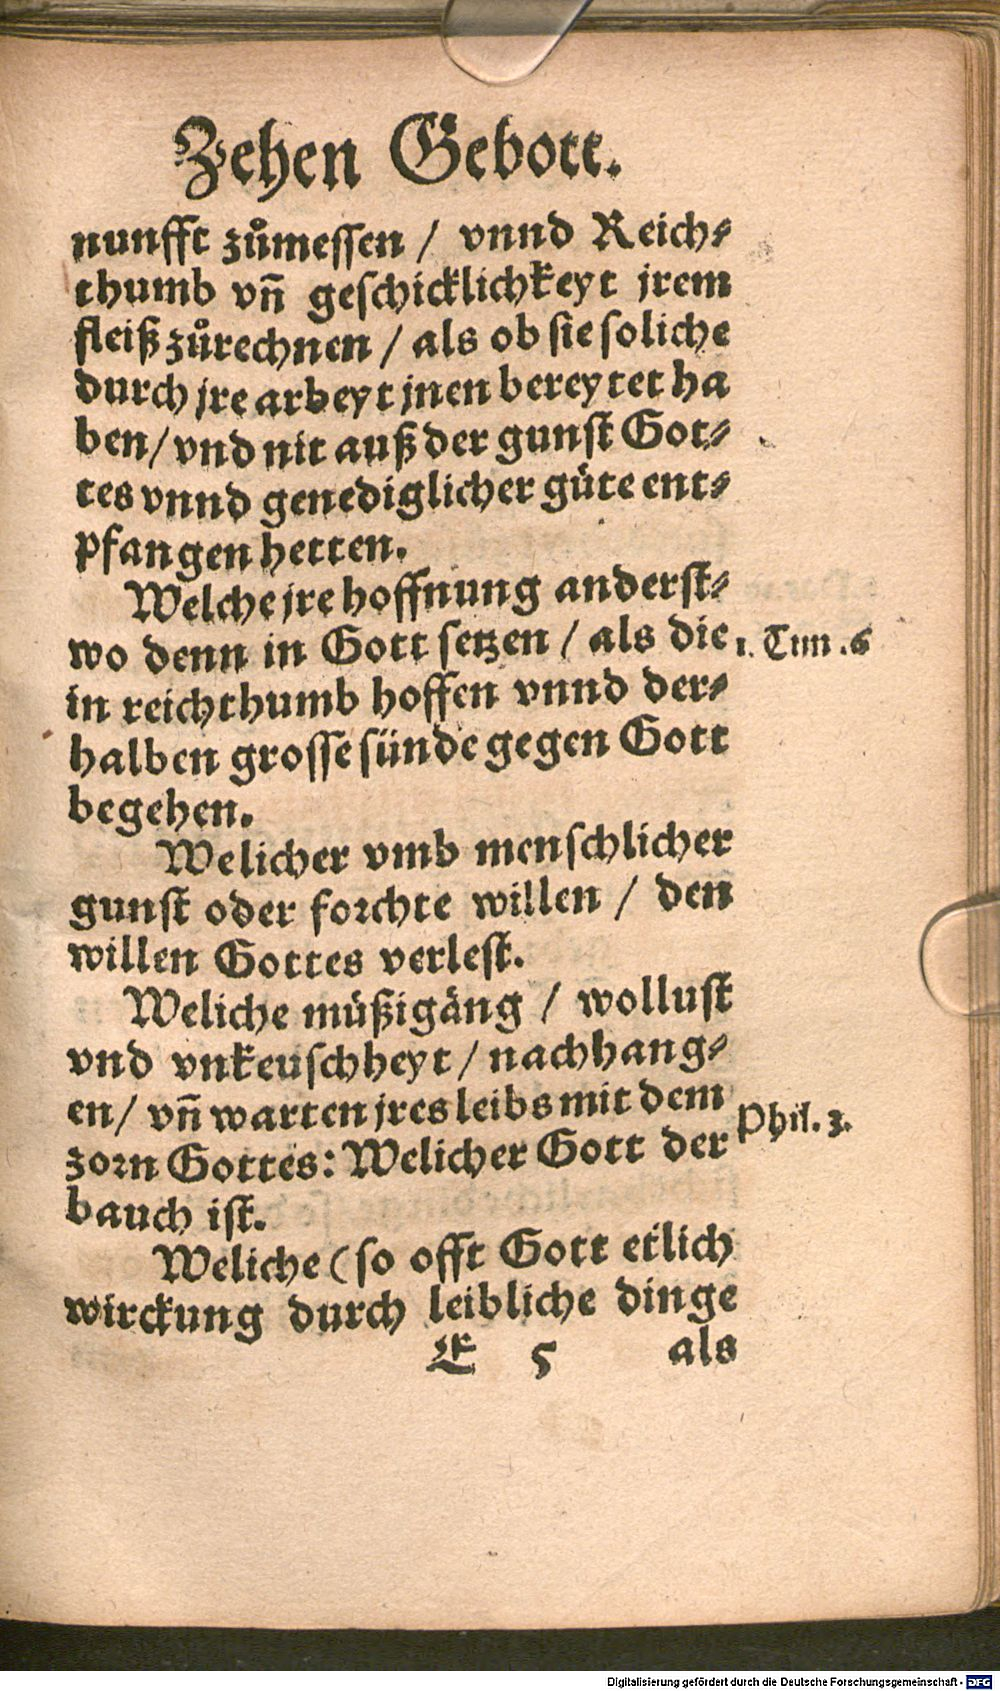 Zehen Gebott.
nunfft zůmessen / vnnd Reich⸗
thumb vñ geschicklichkeyt jrem
fleiß zůrechnen / als ob sie soliche
durch jre arbeyt jnen bereytet ha
ben / vnd nit auß der gunst Got⸗
tes vnnd genediglicher güte ent⸗
pfangen hetten.
Welche jre hoffnung anderst⸗
wo denn in Gott setzen / als die
1. Tim .6
in reichthumb hoffen vnnd der⸗
halben grosse sünde gegen Gott
begehen.
Welicher vmb menschlicher
gunst oder forchte willen / den
willen Gottes verlest.
Weliche müßigäng / wollust
vnd vnkeuschheyt / nachhang⸗
en / vñ warten jres leibs mit dem
zorn Gottes: Welicher Gott der
Phil. 3.
bauch ist.
Weliche (so offt Gott etlich
wirckung durch leibliche dinge
E 5 als
Digitalisierung gefördert durch die Deutsche Forschungsgemeinschaft - DFG